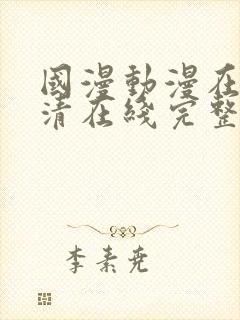 國漫動漫在
清在綫完整
李素堯